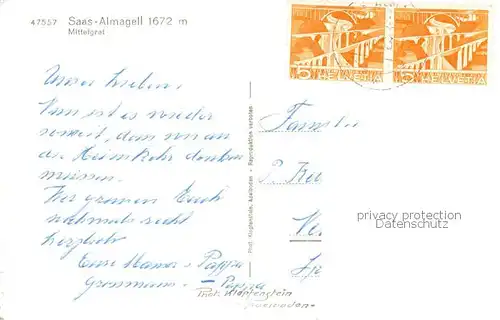 47557 Saas-Almagell 1672 m
Mittelgrat
Unser Lieben!
Nun ist es wieder
soweit, dass wir an
die Heimkehr denken
müssen.
Wir grüssen Euch
nochmals recht
herzlich
Eure Mama - Pappa
Grossmama - Pappa
Phot. Klopfenstein, Adelboden - Reproduktion verboten
Familie
HELVETIA
5
HELVETIA
5
privacy protection
Datenschutz
Phot. Klopfenstein
Adelboden